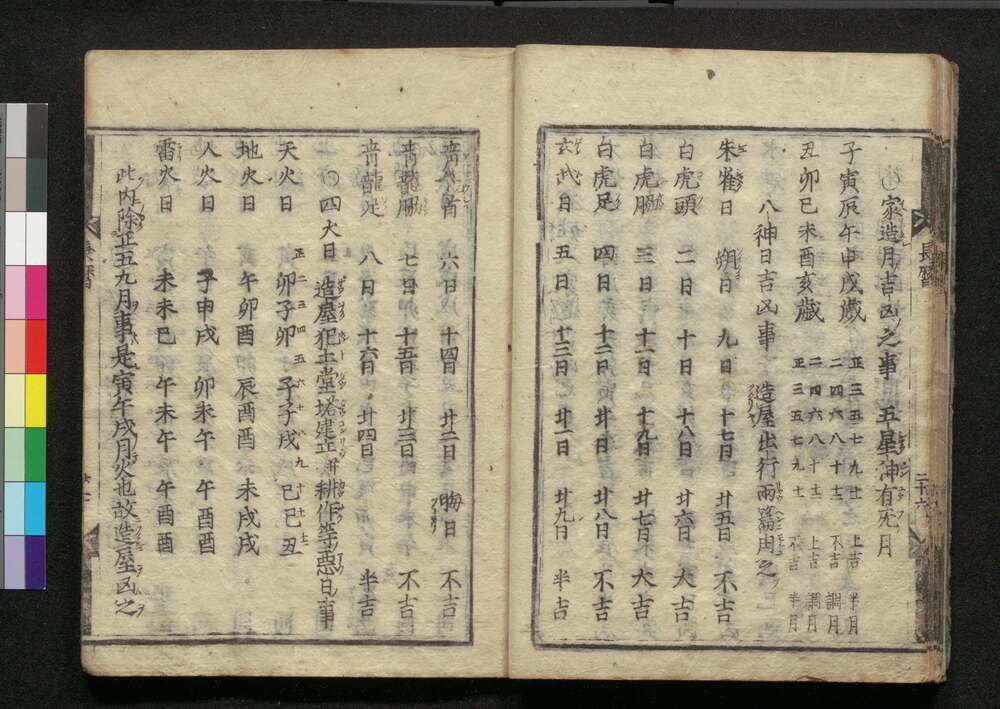 ○家造月吉凶之事 五星神有死月
子寅辰午申戌歳 正三五七九十一 上吉 半月
二四六八十十二 不吉 調月
丑卯巳未酉亥歳 二四六八十十二 上吉 調月
正三五七九十一 不吉 半月
八神日吉凶事 造屋出行両篇用之
朱雀日 朔日 九日 十七日 廿五日 不吉
白虎頭 二日 十日 十八日 廿六日 大吉
白虎脇 三日 十一日 十九日 廿七日 大吉
白虎足 四日 十二日 廿日 廿八日 不吉
玄武日 五日 十三日 廿一日 廿九日 半吉
長暦
二十六
青龍首 六日 十四日 廿二日 晦日 不吉
青龍脇 七日 十五日 廿三日 不吉
青龍足 八日 十六日 廿四日 半吉
○四火日 造屋犯土堂塔建立并耕作等悪日事
正二三四五六七八九十十一十二
天火日 卯子卯 子子戌 巳巳丑
地火日 午卯酉 辰酉酉 未戌戌
人火日 子申戌 卯未午 午酉酉
雷火日 未未巳 午未午 午酉酉
此内除正五九月事是寅午戌月火也故造屋凶之
長暦